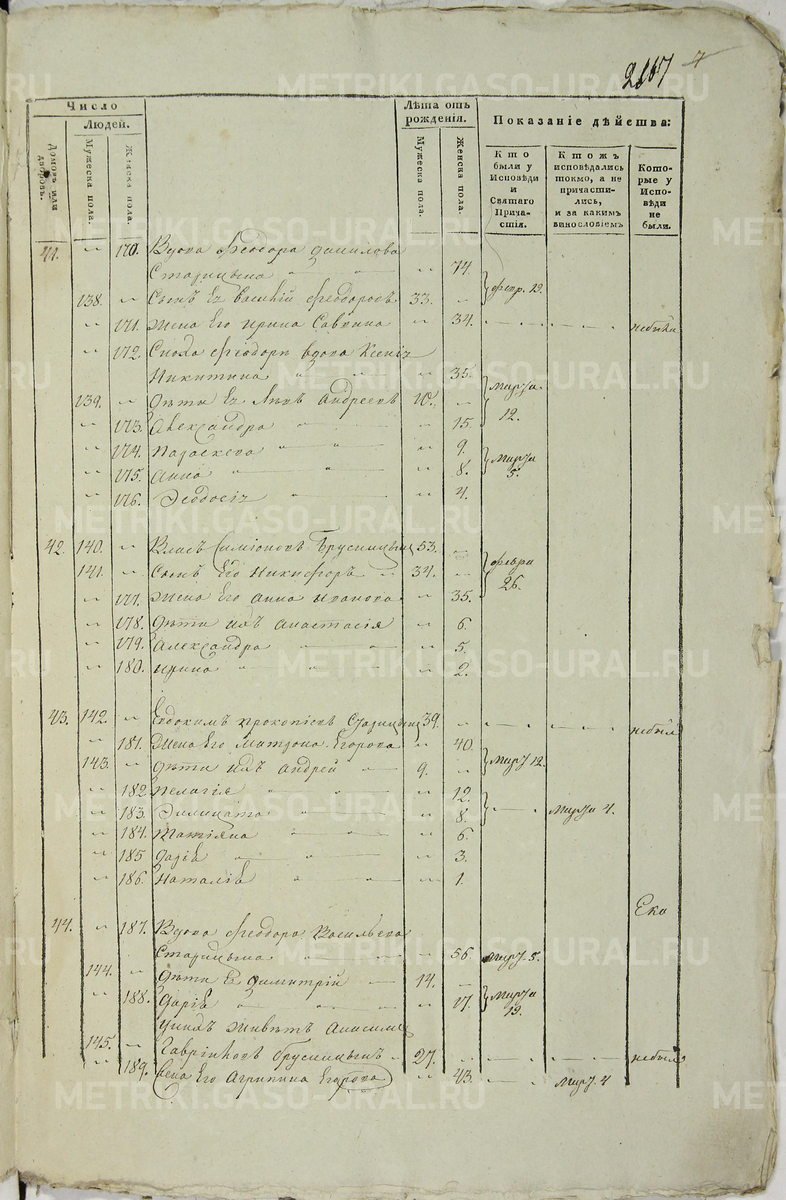 2117 4
Число
Людей.
Домовъ или дворовъ.
Мужеска пола.
Женска пола.
Лѣта отъ рожденія.
Мужеска пола.
Женска пола.
Показаніе дѣйства:
Кто были у Исповѣди и Святаго Прича-стія.
Ктожъ исповѣдались токмо, а не причасти-лись, и за какимъ винословіемъ
Кото-рые у Испо-вѣди не были.
41. " 170. Вдова Феодора Данилова
Старицына " " " 74.
138. " Сынъ Ея Василій Феодоровъ 33. " Февр. 19.
" 171. Жена Его Ирина Саввина " 34. небыла
" 172. Сноха Феодоры вдова Ксенія
Никитина " " " 35.
139. " Дѣти Ея Левъ Андреевъ 10. " Марта 12.
" 173. Александра " " 15.
" 174. Параскева " " " 9. Марта 5.
" 175. Анна " " 8.
" 176. Феодосія " " 4.
42. 140. " Власъ Симіоновъ Брусницынъ 53. "
141. " Сынъ Его Никифоръ " 34. " Февра 26.
" 177. Жена Его Анна Иванова " 35.
" 178. Дѣти ихъ Анастасія " 6.
" 179. Александра " " 5.
" 180. Ирина " " " 2.
43. 142. " Евдокимъ Прокопіевъ Старицынъ 39. " небылъ
" 181. Жена Его Матрона Егорова " 40.
143. " Дѣти ихъ Андрей 9. " Март 12.
" 182. Пелагія " " 12.
" 183. " " " 8. Марта 4.
" 184. Татіяна " " " 6.
" 185 Дарія " " " 3.
" 186. Наталія " " " 1.
44. " 187. Вдова Феодора Васильева
Старицына " " 56 Март. 5.
144. " Дѣти Ея Димитрій 14. "
" 188. Дарія " " " 17. Марта 19.
Унихъ Живетъ
145. " Гавріиловъ Брусницынъ " 27. " небылъ
" 189. Жена Его Агрипина Егорова " 43. Март. 4
METRIKI.GASO-URAL.RU